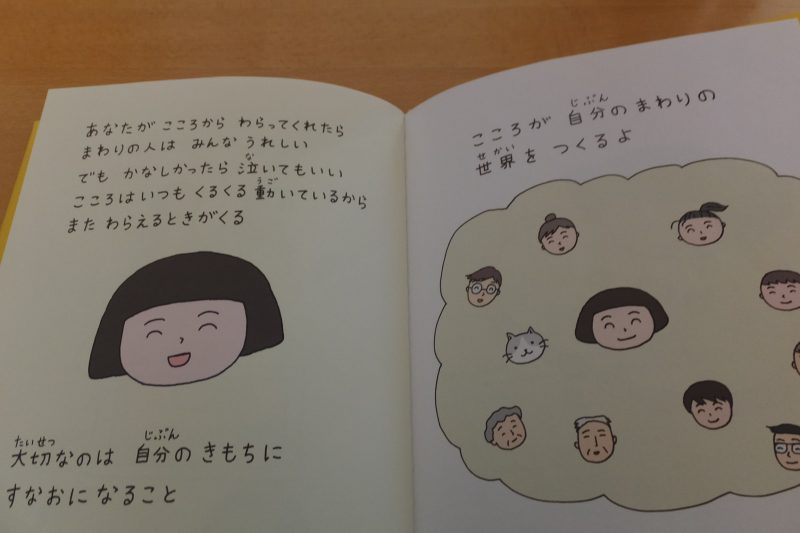 あなたが こころから わらってくれたら
まわりの人は みんな うれしい
でも かなしかったら 泣いてもいい
こころはいつも くるくる 動いているから
また わらえるときがくる
大切なのは 自分の きもちに
すなおに なること
こころが 自分の まわりの
世界を つくるよ